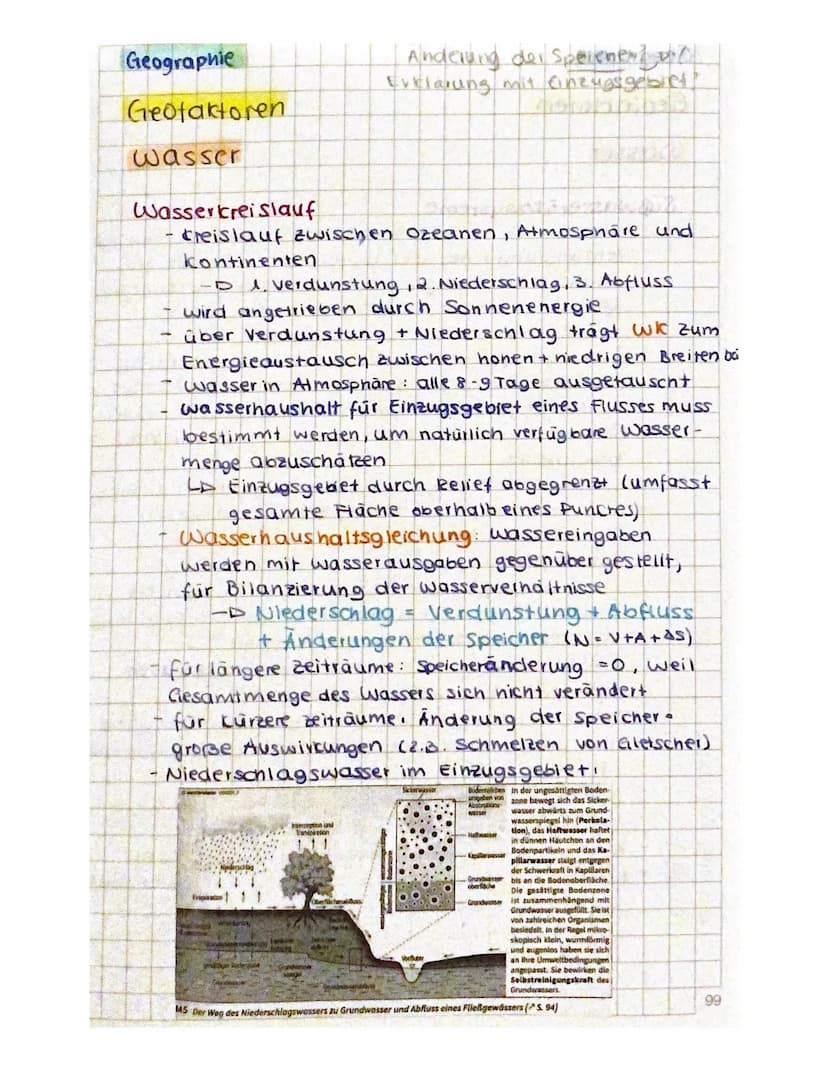 Geographie
Änderung der Speicher?
Erklärung mit Einzugsgebiet?
Geofaktoren
Wasser
Wasserkreislauf
- Kreislauf zwischen Ozeanen, Atmosphäre und
Kontinenten
→ 1. Verdunstung, 2. Niederschlag, 3. Abfluss
- wird angetrieben durch Sonnenenergie
- über Verdunstung + Niederschlag trägt WK zum
Energieaustausch zwischen hohen + niedrigen Breiten bei
- Wasser in Atmosphäre: alle 8-9 Tage ausgetauscht
- Wasserhaushalt für Einzugsgebiet eines Flusses muss
bestimmt werden, um natürlich verfügbare Wasser-
menge abzuschätzen
↳ Einzugsgebiet durch Relief abgegrenzt (umfasst
gesamte Fläche oberhalb eines Punktes)
- Wasserhaushaltsgleichung: Wassereingaben
werden mit Wasserausgaben gegenüber gestellt,
für Bilanzierung der Wasserverhältnisse
→ Niederschlag = Verdunstung + Abfluss
+ Änderungen der Speicher (N = V+A+ΔS)
- für längere Zeiträume: Speicheränderung = 0, weil
Gesamtmenge des Wassers sich nicht verändert
- für kürzere Zeiträume: Änderung der Speicher =
große Auswirkungen (z.B. Schmelzen von Gletscher)
- Niederschlagswasser im Einzugsgebiet:
Sickerwasser
Bodenteilchen
umgeben von
Absorptions-
wasser
Haftwasser
Kapillarwasser
Grundwasser-
oberfläche
Grundwasser
Interzeption und
Transpiration
Niederschlag
Evaporation
Oberflächenabfluss
Vorfluter
Grundwasser
In der ungesättigten Boden-
zone bewegt sich das Sicker-
wasser abwärts zum Grund-
wasserspiegel hin (Perkola-
tion), das Haftwasser haftet
in dünnen Häutchen an den
Bodenpartikeln und das Ka-
pillarwasser steigt entgegen
der Schwerkraft in Kapillaren
bis an die Bodenoberfläche.
Die gesättigte Bodenzone
ist zusammenhängend mit
Grundwasser ausgefüllt. Sie ist
von zahlreichen Organismen
besiedelt. In der Regel mikro-
skopisch klein, wurmförmig
und augenlos haben sie sich
an ihre Umweltbedingungen
angepasst. Sie bewirken die
Selbstreinigungskraft des
Grundwassers.
M5 Der Weg des Niederschlagswassers zu Grundwasser und Abfluss eines Fließgewässers (↗ S. 94)
99